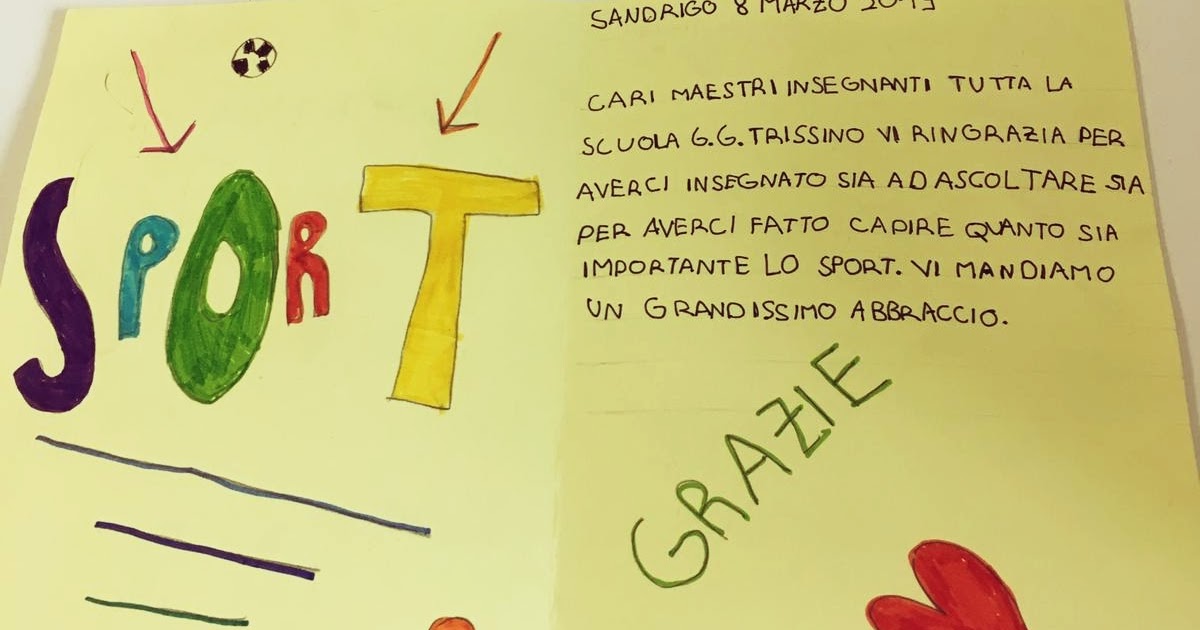 SPORT
SANDRIGO 8 MARZO
CARI MAESTRI INSEGNANTI TUTTA LA
SCUOLA G.G. TRISSINO VI RINGRAZIA PER
AVERCI INSEGNATO SIA AD ASCOLTARE SIA
PER AVERCI FATTO CAPIRE QUANTO SIA
IMPORTANTE LO SPORT. VI MANDIAMO
UN GRANDISSIMO ABBRACCIO.
GRAZIE